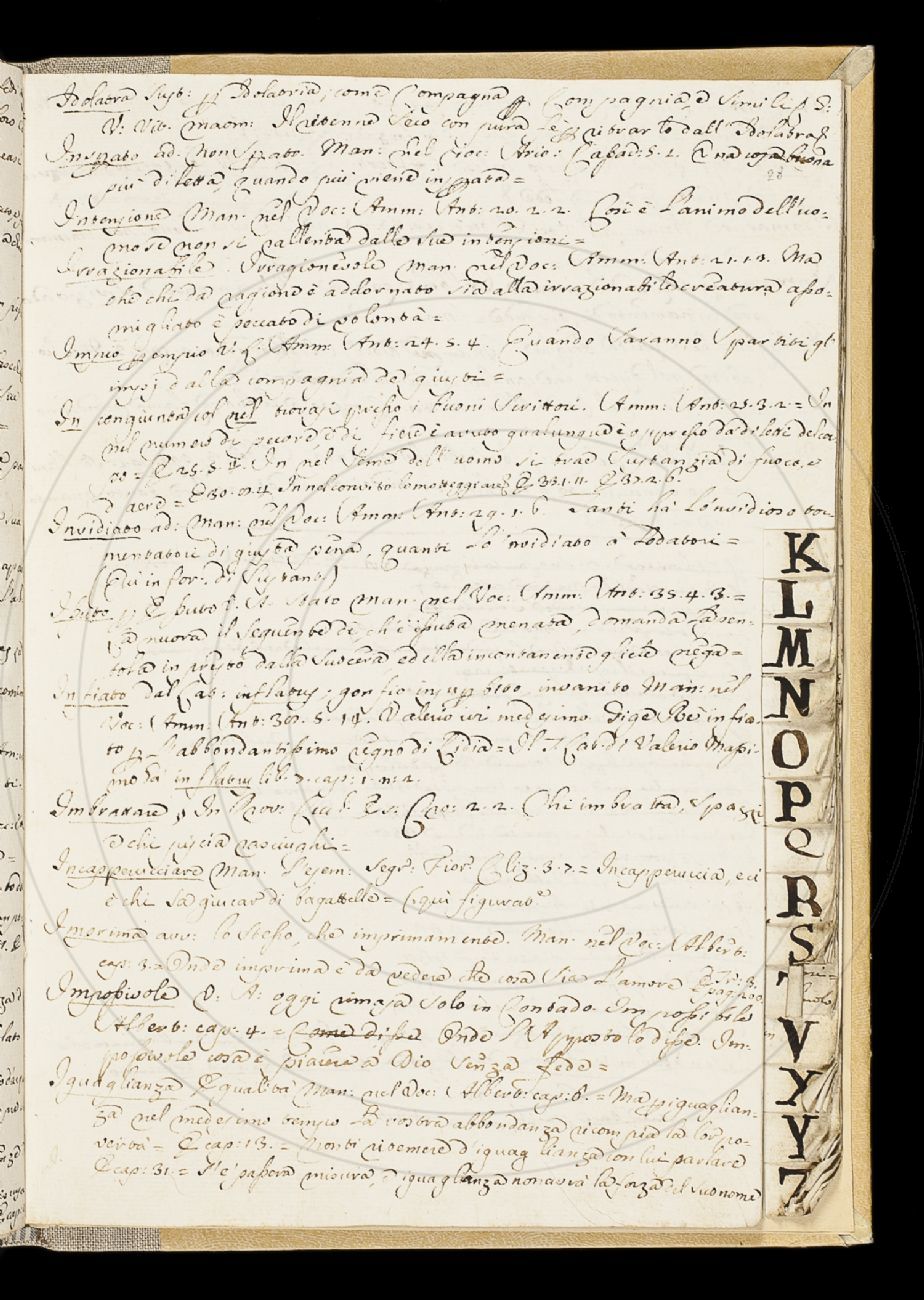 Idolatra Sust: p Idolatria, come Compagna p Compagnia e simile p S:
V: Vit. maom: Il ritenne Seco con pura fè p ritrarlo dall' Idolatrap
Insperato ad. Non Sperato. Man: nel Voc: Ario: Cassar: 5. 1. Una cosa buona
più diletta, quando più viene insperata =
Intenzione Man. nel Voc: Amm: Ant: 20. 2. 2. Così è l'animo dell'uo-
mo se non si rallenta dalle sue intenzioni =
Irrazionabile. Irragionevole Man. nel Voc: Amm: Ant: 21. 1. 3. Ma
che chi da ragione è addornato sia alla irrazionabile creatura asso-
migliato è peccato di volontà =
Impio p empio V. L. Amm: Ant: 24. 5. 4. Quando Saranno Spartiti gl'
impj dalla compagnia de' giusti =
In congiunta col nel trovasi presso i buoni Scrittori. Amm: Ant: 25. 3. 2. = In
nel numero di pecore e di fiere è avuto qualunque è oppresso da diletti del cor-
po = E 25. 5. In nel Seme dell'uomo si trae Sustanzia di fuoco, e
d'aere = E 30. 4. In nel convito E 33. 1. 11. E 37. 2. 6.
Invidiato ad: Man: nel Voc: Amm: Ant: 29. 1. 6. Tanti ha lo 'nvidioso tor-
mentatori di giusta pena, quanti lo 'nvidiato à lodatori =
(qui in for: di Sustant)
Man. nel Voc: Amm: Ant: 35. 4. 3. =
La nuora il Seguente dì, ch'è issuta menata, domanda la pen-
tola in presto dalla Suocera ed ella incontanente gliele niega =
Infiato dal Lat: inflatus; gonfio insuperbito, invanito Man: nel
Voc: Amm: Ant: 30. 5. Valerio ivi medesimo. Sige Re è infia-
to p l'abbondantissimo regno di Lidia = Il T. Lat: di Valerio Massi-
mo ha inflatus lib: 7. cap: 1. n: 2.
Imbrattare In Prov: Cecch. Es: Cro: 2. 2. Chi imbratta, Spazzi
e chi piscia rasciughi =
Incapperucciare Man: l'esem: Segr: Fior: Cliz. 3. 7. = Incapperuccia, e ci
è chi sa giucar di bagattelle = (qui figurat:
Imprima avv: lo stesso, che imprimamente. Man: nel Voc: Albert:
cap: 3. = Onde imprima è da vedere che cosa sia l'amore
Impossivole V: A: oggi rimasa solo in Contado. Impossibile
Albert: cap: 4. = Come disse Onde l'Apposto lo disse. Im-
possivole cosa è piacere a Dio Senza fede =
Iguaglianza Equalità Man: nel Voc: Albert: cap: 6. = Ma p iguaglian-
za nel medesimo tempo la vostra abbondanza ricompia la lor po-
vertà = E cap: 13. = Non ti ritenere d'iguaglianza con lui parlare
E cap: 31. = S'e' passerà misura, e iguaglianza non avrà la forza del suo nome
K
L
M
N
O
P
Q
R
S
T
V
X
Y
Z